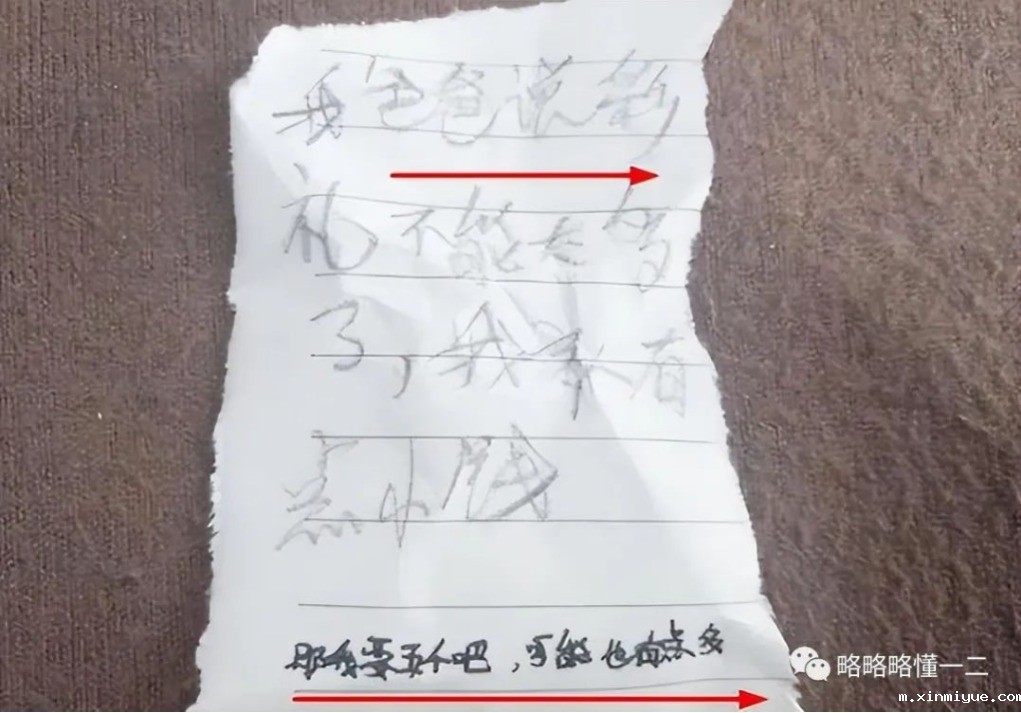 我爸爸说彩
礼不能太多
了，我家有
点小钱
那我要五个吧，可能也有点多
略略略懂一二
m.xinmiyue.com